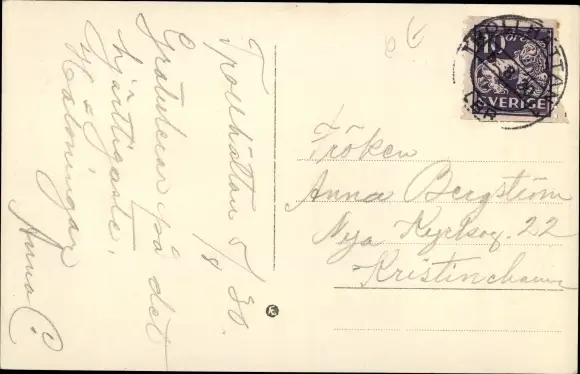 Trollhättan 5/8 30.
Gratulerar på det
hjärtligaste.
Hälsningar
Anna C.
TROLLHÄTTAN
10 ÖRE
SVERIGE
Fröken
Anna Bergström
Nya Kyrkog. 22
Kristinehamn
K